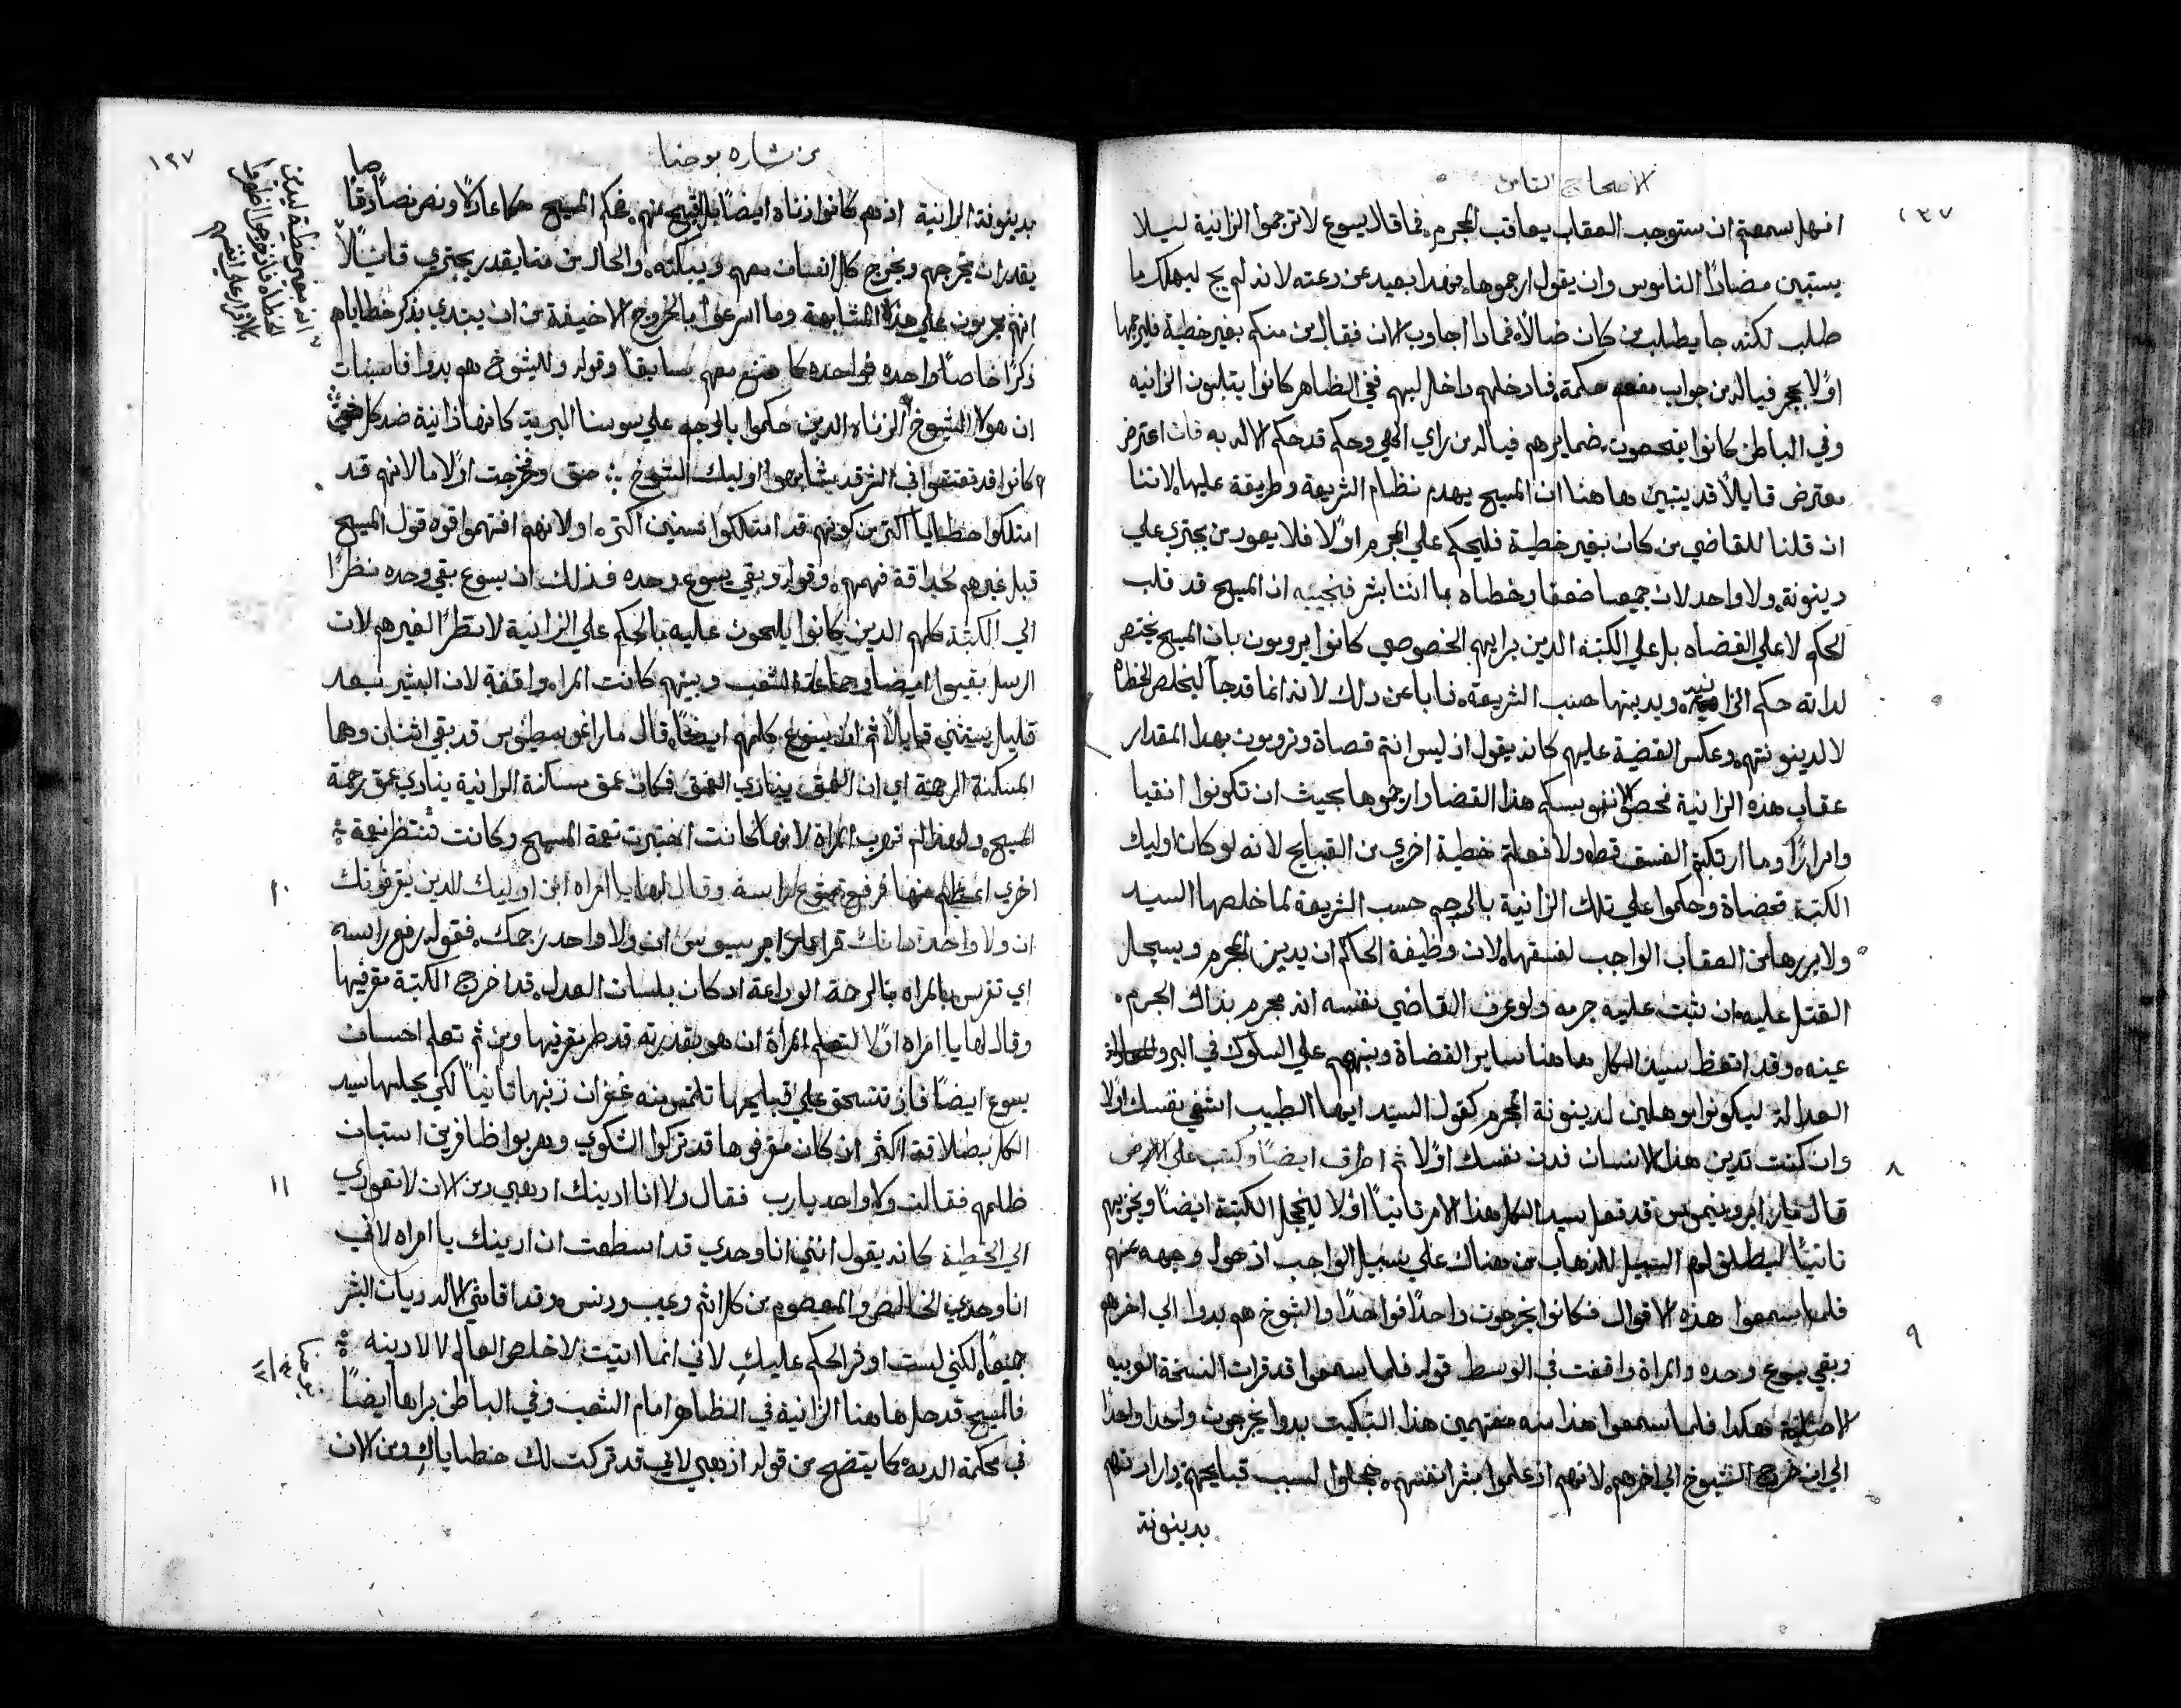 الاصحاح الثامن
١٣٧
انهل سمعتم ان ستوجب العقاب يعاقب المجرم. فما قال يسوع لا ترجموا الزانية ليلا
يستبين مضادًا الناموس وان يقول ارجموها. فهدا بعيد عن دعته لانه لم يج ليهلك ما
طلب لكنه جا يطلب من كان ضالاً. فمادا اجاوب الان فقال من منكم بغير خطية فليرجمها
اولاً بحجر فياله من جواب مفعم حكمة. فادخلهم داخل لبهم ففي الظاهر كانوا يتلبون الزانيه
وفي الباطن كانوا يفحصوت ضمايرهم فياله من راي الهي وحكم قد حكم الاله به فان اعترض
معترض قايلاً قد يتبين هاهنا ان المسيح يهدم نظام الشريعة وطريقة عليها. لاننا
ان قلنا للقاضي من كان بغير خطية فليحكم علي المجرم اولاً فلا يعود من يجتري علي
دينونة. ولا واحد لان جميعنا ضعفا وخطاه بما اننا بشر فنجيبه ان المسيح قد قلب
الحكم لا علي القضاه بل علي الكتبة الدين برايهم الخصوصي كانوا يرويون بان المسيح يختص
لداته حكم الزانية. ويدينها حسب الشريعة. فابا عن دلك لانه انما قد جا ليخلص الخطاه
لا لدينونتهم. وعكس القضية عليهم كانه يقول ان ليس انتم قصاة وترويون بهدا المقدار
عقاب هده الزانية فحصوا نفوسكم هدا القضا وارجموها بحيث ان تكونوا انقيا
وابرارًا وما ارتكبتم الفسق قط. ولا فعلتم خطية اخري من القبايح لانه لو كان اوليك
الكتبة قضاة وحكموا علي تلك الزانية بالرجم حسب الشريعة لما خلصها السيد
ولا بررها من العقاب الواجب لفسقها. لان وظيفة الحاكم ان يدين المجرم ويسجل
القتل عليه. ان ثبت عليه جرمه ولو عرف القاضي نفسه انه مجرم بذاك الجرم.
عينه. وقد اتعظ سيد الكل هاهنا ساير القضاة وينبههم علي السلوك في البر و
العداله ليكونوا موهلين لدينونة المجرم كقول السيد ايها الطبيب اشفي نفسك اولاً
٨
وان كنت تدين هذا الانسان فدن نفسك اولاً ثم اطرق ايضًا وكتب علي الارض
قال مار ايرونيموس قد فعل سيد الكل هذا الامر تانيًا اولاً ليخجل الكتبة ايضًا ويخزيهم
تانيًا ليطلق لهم السبيل للذهاب من هناك علي سبيل الواجب اذ حول وجهه عنهم
٩
فلما سمعوا هذه الاقوال فكانوا يخرجوت واحدًا فواحدًا والشيوخ هم بدوا الي اخرهم
وبقي يسوع وحده والمراة واقفت في الوسط قوله فلما سمعوا قد قرات النسخة العربيه
الاصلية هكدا فلما سمعوا هذا منه مفتهمين هذا التبكيت بدوا يخرجون واحدا واحدًا
الي ان خرج الشيوخ الي اخرهم. لانهم اذ علموا بشر انفسهم. خجلوا لسبب قبايحهم وارادتهم
بدينونة
من بشاره يوحنا
١٣٧
بدينونة الزانية اذ هم كانوا زناه ايضًا بل اقبح منهم. فحكم المسيح حكما عادلاً ونص نصا صادقًا
يقدر ان يخرجهم ويخرج كل انسان معهم ويبكته. والحال من منا يقدر يجتري قايلاً
انهم مجربون علي هذه المشابهة وما اسرعوا بالخروج الا خيفة من ان يبتدي يذكر خطاياهم
ذكرًا خاصًا واحده فواحده كما صنع معهم سابقًا وقوله والشيوخ هم بدوا فاستبان
ان هولا الشيوخ الزناه الدين حكموا بالرجم علي سوسنا البرية كانها زانية ضد كل حق
كانوا قد فسقوا في الشر قد شابهوا اوليك الشيوخ
امتلكوا خطايا اكثر من كونهم قد امتلكوا سنين اكتره او لانهم افتهموا قوه قول المسيح
قبل غيرهم بحداقة فهمهم. وقوله وبقي يسوع وحده فدلك ان يسوع بقي وحده نظرًا
الي الكتبة كلهم الدين كانوا يلحون عليه بالحكم علي الزانية لا نظرًا لغيرهم لان
الرسل بقيوا ايضا وجماعة الشعب وبينهم كانت المراه واقفة لان البشير بعد
قليل يستثني قايلاً ثم ان يسوع كلمهم ايضًا. قال مار اغوسطينوس قد بقي اثنان وهما
المسكنة الرحمة اي ان العمق ينادي العمق فكان عمق مسكنة الزانية ينادي عمق رحمة
المسيح. ولهذا لم تهرب المراة لانها كانت اختبرت نعمة المسيح وكانت تنتظر نعمة
١٠
اخري اعظم منها فرفع يسوع راسه وقال لها يا امراه اين اوليك الدين يقرفونك
ولا واحد رجمك. فقوله رفع راسه
اي تفرس بالمراه بالرحة الوداعة اد كان بلسان العدل. قد اخرج الكتبة مقرفيها
وقال لها يا امراه اولاً لتعلم المراة ان هو بقدرته قد طرد مقرفيها ومن ثم تعلم احسان
يسوع ايضًا فاذ تنسحق علي قبايحها تلتمس منه غفران ذنبها تانيًا لكي يجيبها سيد
الكل بطلاقة اكثر ان كان مقرفوها قد تركوا الشكوي وهربوا ظافرين استبان
١١
ظلمهم فقالت ولا واحد يارب فقال ولا انا ادينك ادهبي ومن الان لا تعودي
الي الخطية كانه يقول انني انا وحدي قد اسطعت ان ادينك يا امراه لاني
انا وحدي الخالص والمعصوم من كل اثم وعيب ودنس. وقد اقامني الاله ديان البشر
جميعًا. لكني لست اوفر الحكم عليكِ لاني انما اتيت لاخلص العالم لا لادينه
فالمسيح قد حل هاهنا الزانية في الظاهر امام الشعب وفي الباطن برا ها ايضًا
في محكمة الديه كما يتضح من قوله ادهبي لاني قد تركت لك خطاياكِ ومن الان